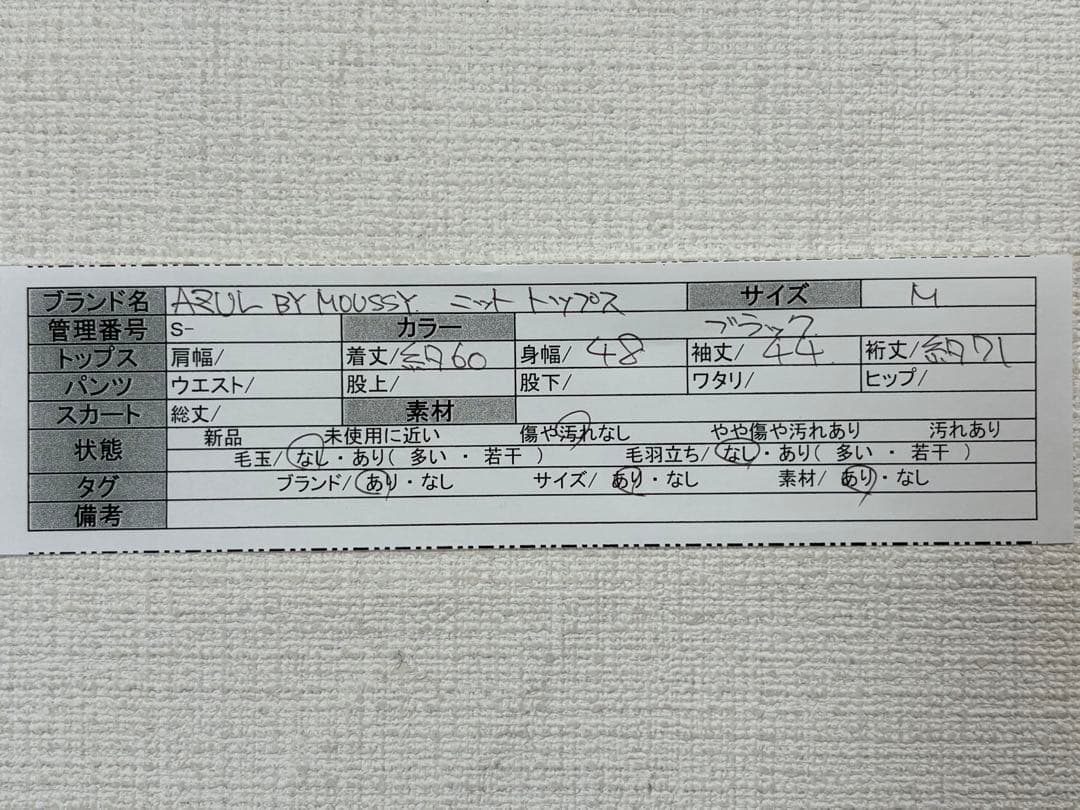 ブランド名 AZUL BY MOUSSY. ニット トップス サイズ M
管理番号 S- カラー ブラック
トップス 肩幅/ 着丈/約60 身幅/48 袖丈/44 裄丈/約71
パンツ ウエスト/ 股上/ 股下/ ワタリ/ ヒップ/
スカート 総丈/ 素材
状態 新品 未使用に近い 傷や汚れなし やや傷や汚れあり 汚れあり
毛玉/なし・あり( 多い ・ 若干 ) 毛羽立ち/なし・あり( 多い ・ 若干 )
タグ ブランド/あり・なし サイズ/あり・なし 素材/あり・なし
備考